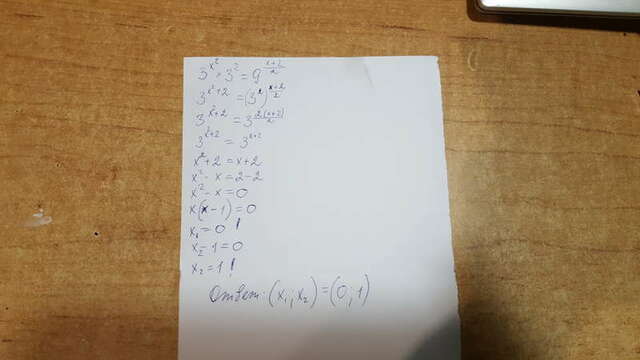 3^(x²) · 3² = 9^((x+2)/2)
3^(x²+2) = (3²)^((x+2)/2)
3^(x²+2) = 3^(2(x+2)/2)
3^(x²+2) = 3^(x+2)
x²+2 = x+2
x²-x = 2-2
x²-x = 0
x(x-1) = 0
x₁ = 0 !
x₂-1 = 0
x₂ = 1 !
Ответ: (x₁; x₂) = (0; 1)